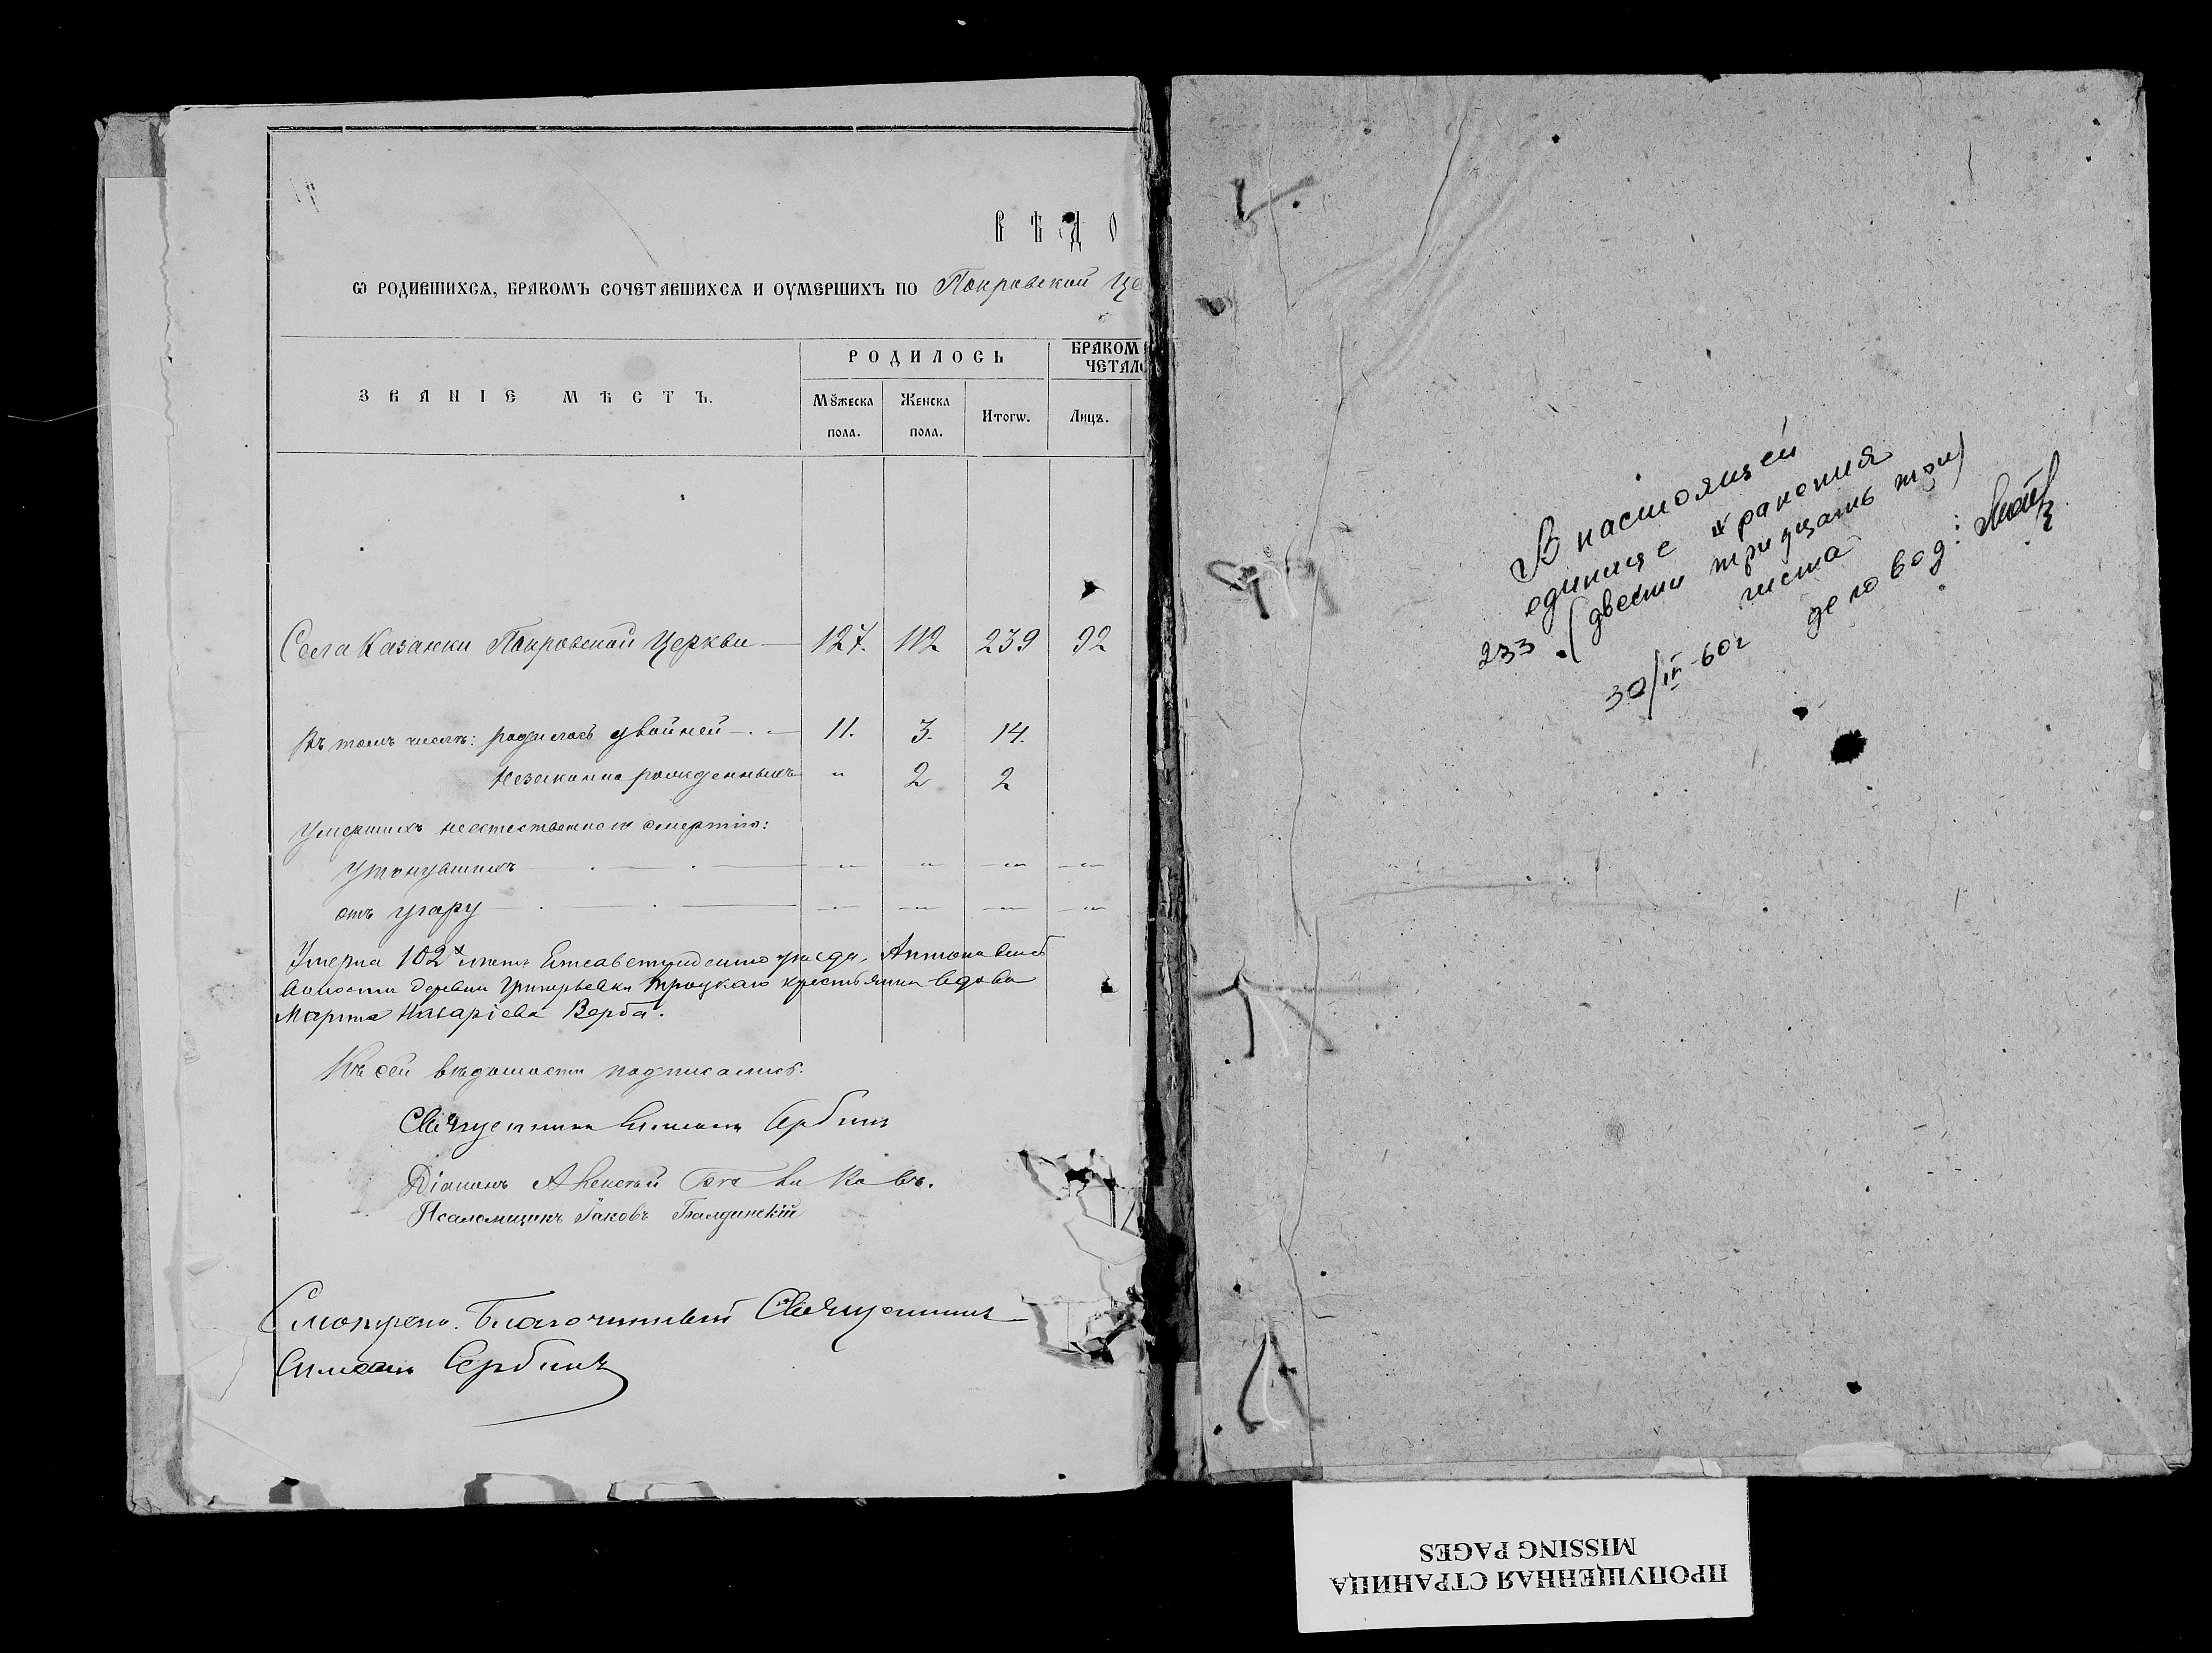 ВѢДО
Ѡ РОДИВШИХСѦ, БРАКОМЪ СОЧЕТАВШИХСѦ И ОУМЕРШИХЪ ПО Покровской Це
ЗВАНІЕ МѢСТЪ.
РОДИЛОСЬ
БРАКОМ
ЧЕТАЛО
Мꙋжеска пола.
Женска пола.
Итогѡ.
Лицъ.
Села Казанки Покровской Церкви 127. 112 239 92
Въ томъ числѣ: родилось двойней 11. 3. 14.
Незаконно рожденныхъ " 2 2
Умершихъ неестественною смертію:
Утонувшихъ " " " "
отъ угару " " " "
Умерла 102х лѣтъ Елисаветградскаго уѣзда,
волости деревни Григорьевки Троцкаго крестьянина вдова
Марта Назаріева Верба.
Къ сей вѣдомости подписались:
Священникъ Симеонъ Сербинъ
Діаконъ Алексѣй
Псаломщикъ Іаковъ Балдинскій
Смотрено. Благочинный Священникъ
Симеонъ Сербинъ
В настоящей
единице хранения
233 (двести тридцать три)
листа
30/IV-60г делопвод:
ПРОПУЩЕННАЯ СТРАНИЦА
MISSING PAGES